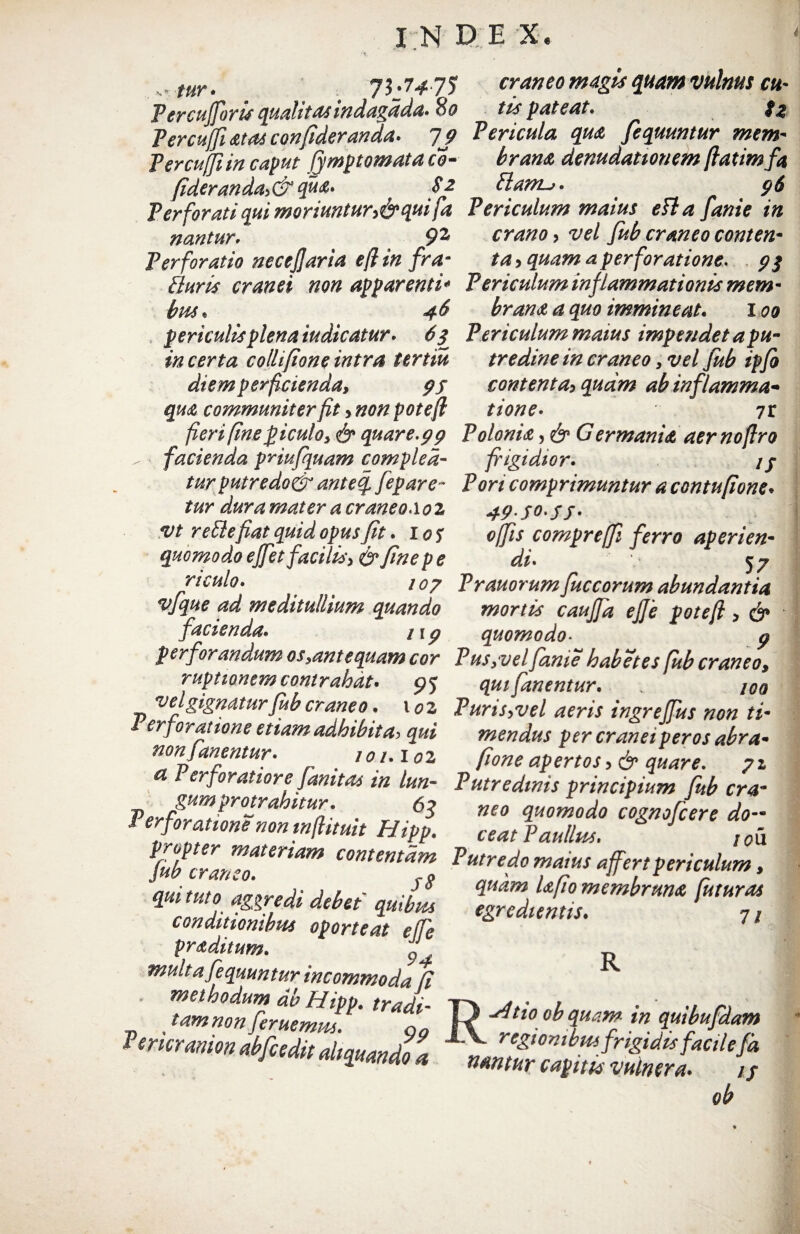 INDEX.
tur. 73.74.75
Percussoris qualitas indagāda. 80
Percussi ætas consideranda. 79
Percussi in caput symptomata cō-
sideranda, & quæ. 82
Perforati qui moriuntur, & qui sa
nantur. 92
Perforatio necessaria est in fra-
cturis cranei non apparenti-
bus. 46
periculis plena iudicatur. 63
in certa collisione intra tertiū
diem perficienda, 95
quæ communiter fit, non potest
fieri sine piculo, & quare. 99
facienda priusquam compleā-
tur putredo & anteq̃ separe-
tur dura mater a craneo. 102
vt recte fiat quid opus sit. 105
quomodo esset facilis, & sine pe
riculo. 107
vsque ad meditullium quando
facienda. 119
perforandum os, antequam cor
ruptionem contrahat. 95
vel gignatur sub craneo. 102
Perforatione etiam adhibita, qui
non sanentur. 101.102
a Perforatiore sanitas in lun-
gum protrahitur. 63
Perforationē non instituit Hipp.
propter materiam contentām
sub craneo. 58
qui tuto aggredi debet quibus
conditionibus oporteat esse
præditum. 94
multa sequuntur incommoda si
methodum ab Hipp. tradi-
tam non seruemus. 99
Pericranion abscedit aliquando a
craneo magis quam vulnus cu-
tis pateat. 82
Pericula quæ sequuntur mem-
branæ denudationem statim fa
ctam. 96
Periculum maius est a sanie in
crano, vel sub craneo conten-
ta, quam a perforatione. 93
Periculum inflammationis mem-
branæ a quo immineat. 100
Periculum maius impendet a pu-
tredine in craneo, vel sub ipso
contenta, quàm ab inflamma-
tione. 71
Poloniæ, & Germaniæ aer nostro
frigidior. 15
Pori comprimuntur a contusione.
49.50.55.
ossis compressi ferro aperien-
di. 57
Prauorum succorum abundantia
mortis caussa esse potest, &
quomodo. 9
Pus, vel saniē habētes sub craneo,
qui sanentur. 100
Puris, vel aeris ingressus non ti-
mendus per cranei peros abra-
sione apertos, & quare. 72
Putredinis principium sub cra-
neo quomodo cognoscere do-
ceat Paullus. 10ū
Putredo maius affert periculum,
quàm læsio membrunæ futuras
egredientis. 71
R
RAtio ob quam in quibusdam
regionibus frigidis facile sa
nantur capitis vulnera. 15
ob